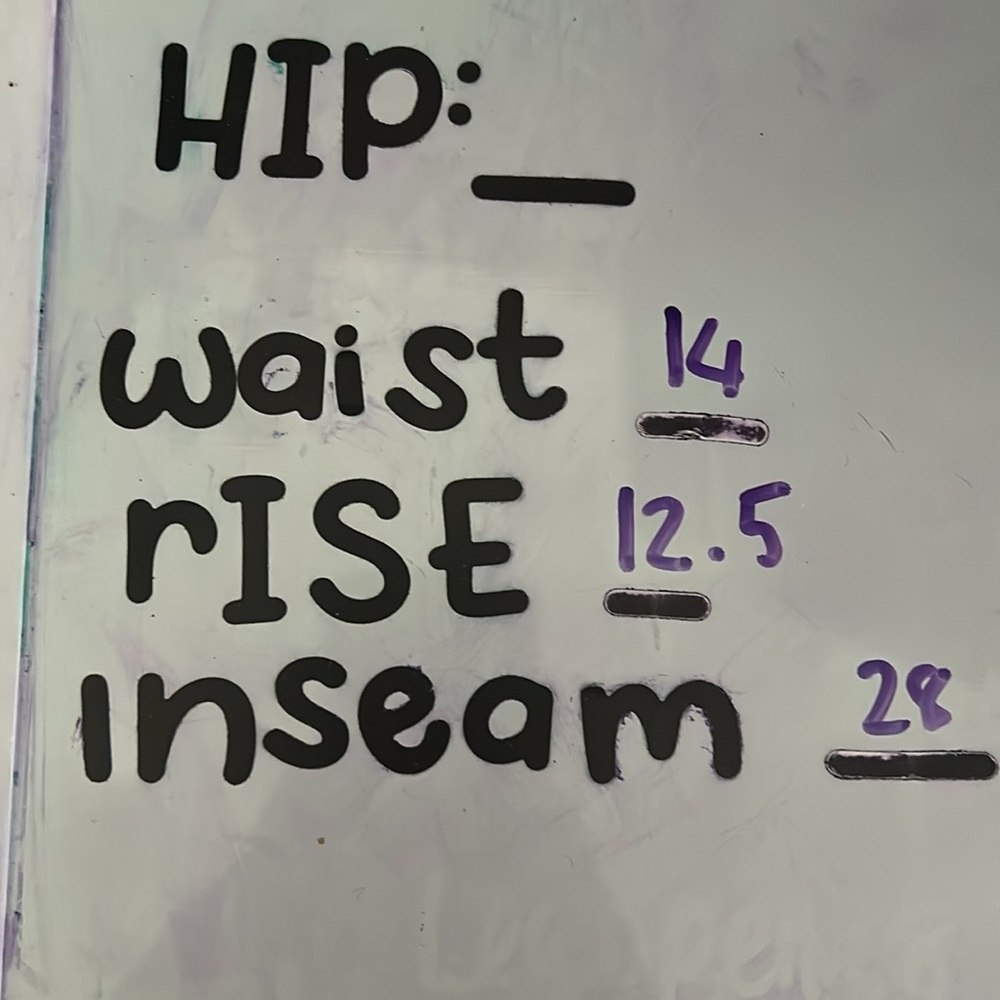 HIP: _
waist 14
rISE 12.5
Inseam 28